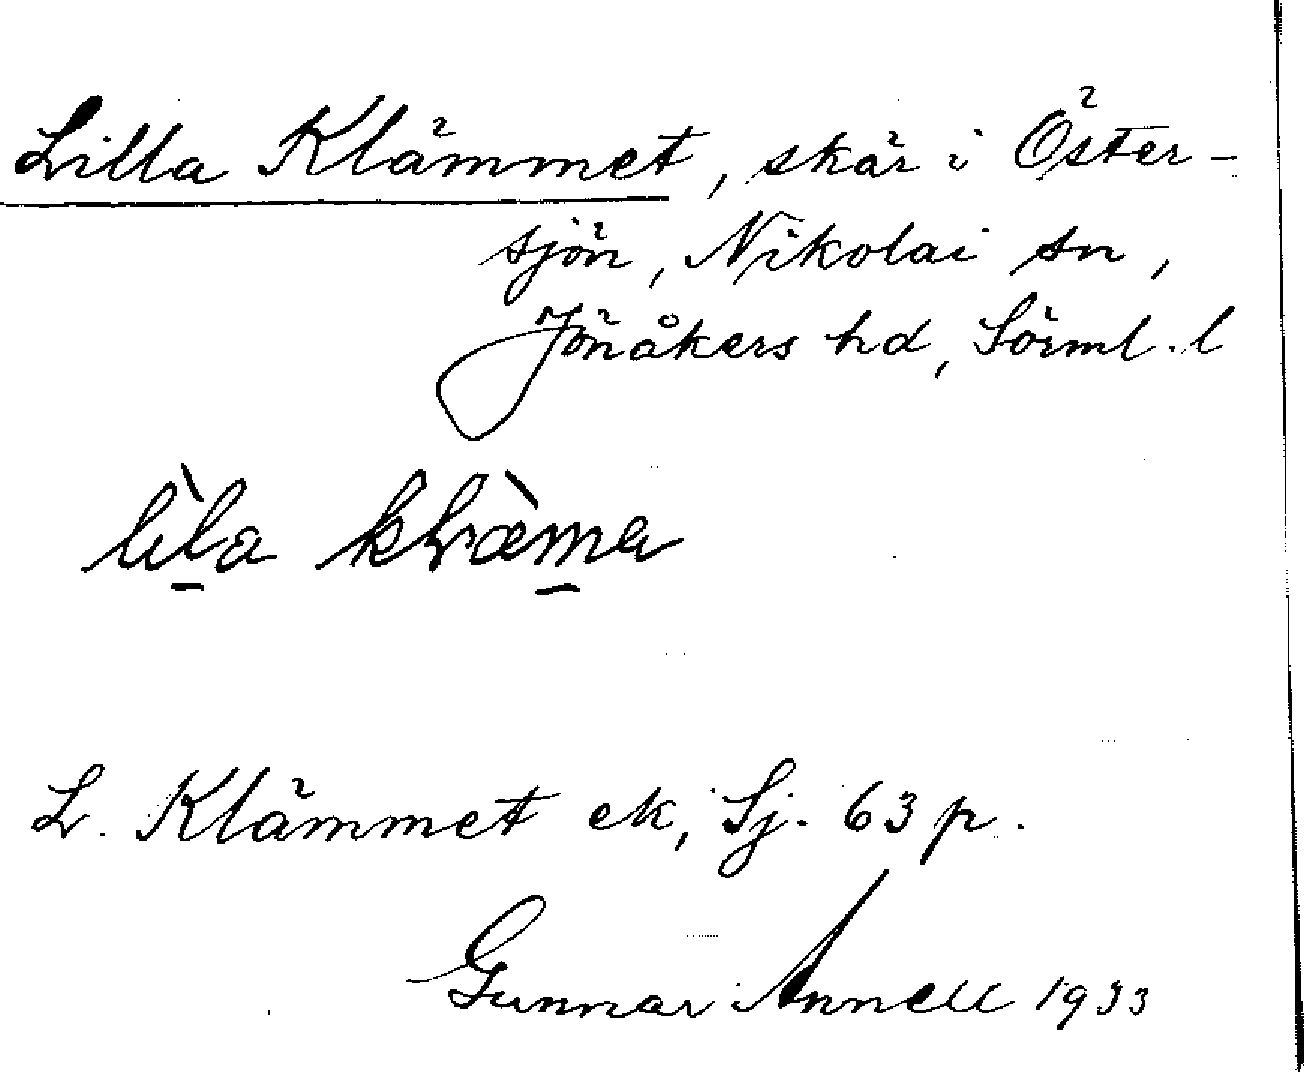 Lilla Klämmet, skär i Öster-
sjön, Nikolai sn,
Jönåkers hd, Sörml. l
lìla klæ̀ma
L. Klämmet ek, Sj. 63 p.
Gunnar Annell 1933